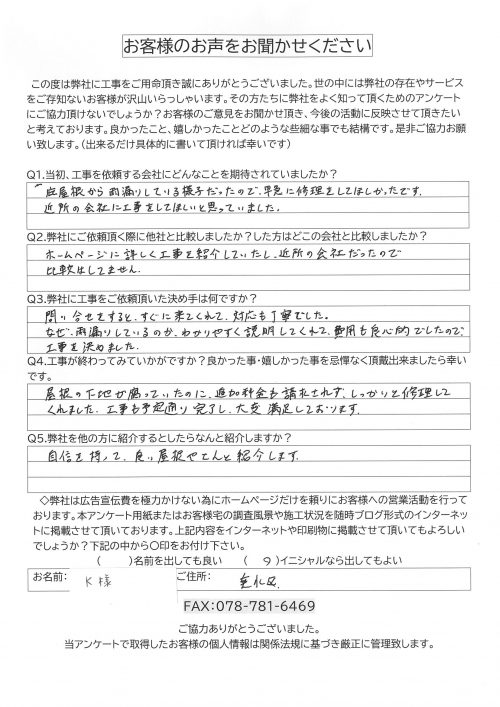 お客様のお声をお聞かせください
この度は弊社に工事をご用命頂き誠にありがとうございました。世の中には弊社の存在やサービス
をご存知ないお客様が沢山いらっしゃいます。その方たちに弊社をよく知って頂くためのアンケート
にご協力頂けないでしょうか？お客様のご意見をお聞かせ頂き、今後の活動に反映させて頂きたい
と考えております。良かったこと、嬉しかったことどのような些細な事でも結構です。是非ご協力お願
い致します。（出来るだけ具体的に書いて頂ければ幸いです）
Q1.当初、工事を依頼する会社にどんなことを期待されていましたか？
庇屋根から雨漏りしている様子だったので、早急に修理をしてほしかったです。
近所の会社に工事をしてほしいと思っていました。
Q2.弊社にご依頼頂く際に他社と比較しましたか？した方はどこの会社と比較しましたか？
ホームページに詳しく工事を紹介していたし、近所の会社だったので
比較はしてません。
Q3.弊社に工事をご依頼頂いた決め手は何ですか？
問い合せをすると、すぐに来てくれて、対応も丁寧でした。
なぜ、雨漏りしているのか、わかりやすく説明してくれて、費用も良心的でしたので、
工事を決めました。
Q4.工事が終わってみていかがですか？良かった事・嬉しかった事を忌憚なく頂戴出来ましたら幸い
です。
屋根の下地が腐っていたのに、追加料金も請求されず、しっかりと修理して
くれました。工事も予定通り完了し、大変満足しております。
Q5.弊社を他の方に紹介するとしたらなんと紹介しますか？
自信を持って、良い屋根やさんと紹介します。
◇弊社は広告宣伝費を極力かけない為にホームページだけを頼りにお客様への営業活動を行って
おります。本アンケート用紙またはお客様宅の調査風景や施工状況を随時ブログ形式のインターネッ
トに掲載させて頂いております。上記内容をインターネットや印刷物に掲載させて頂いてもよろしい
でしょうか？下記の中から〇印をお付け下さい。
（　　）名前を出しても良い　（　　）イニシャルなら出してもよい
お名前： K様 ご住所： 垂水区
FAX：078-781-6469
ご協力ありがとうございました。
当アンケートで取得したお客様の個人情報は関係法規に基づき厳正に管理致します。